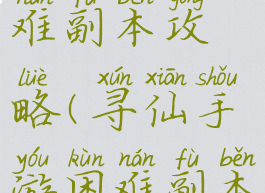 nán fù běn gōng
难副本攻
lüè xún xiān shǒu
略(寻仙手
yóu kùn nán fù běn
游困难副本